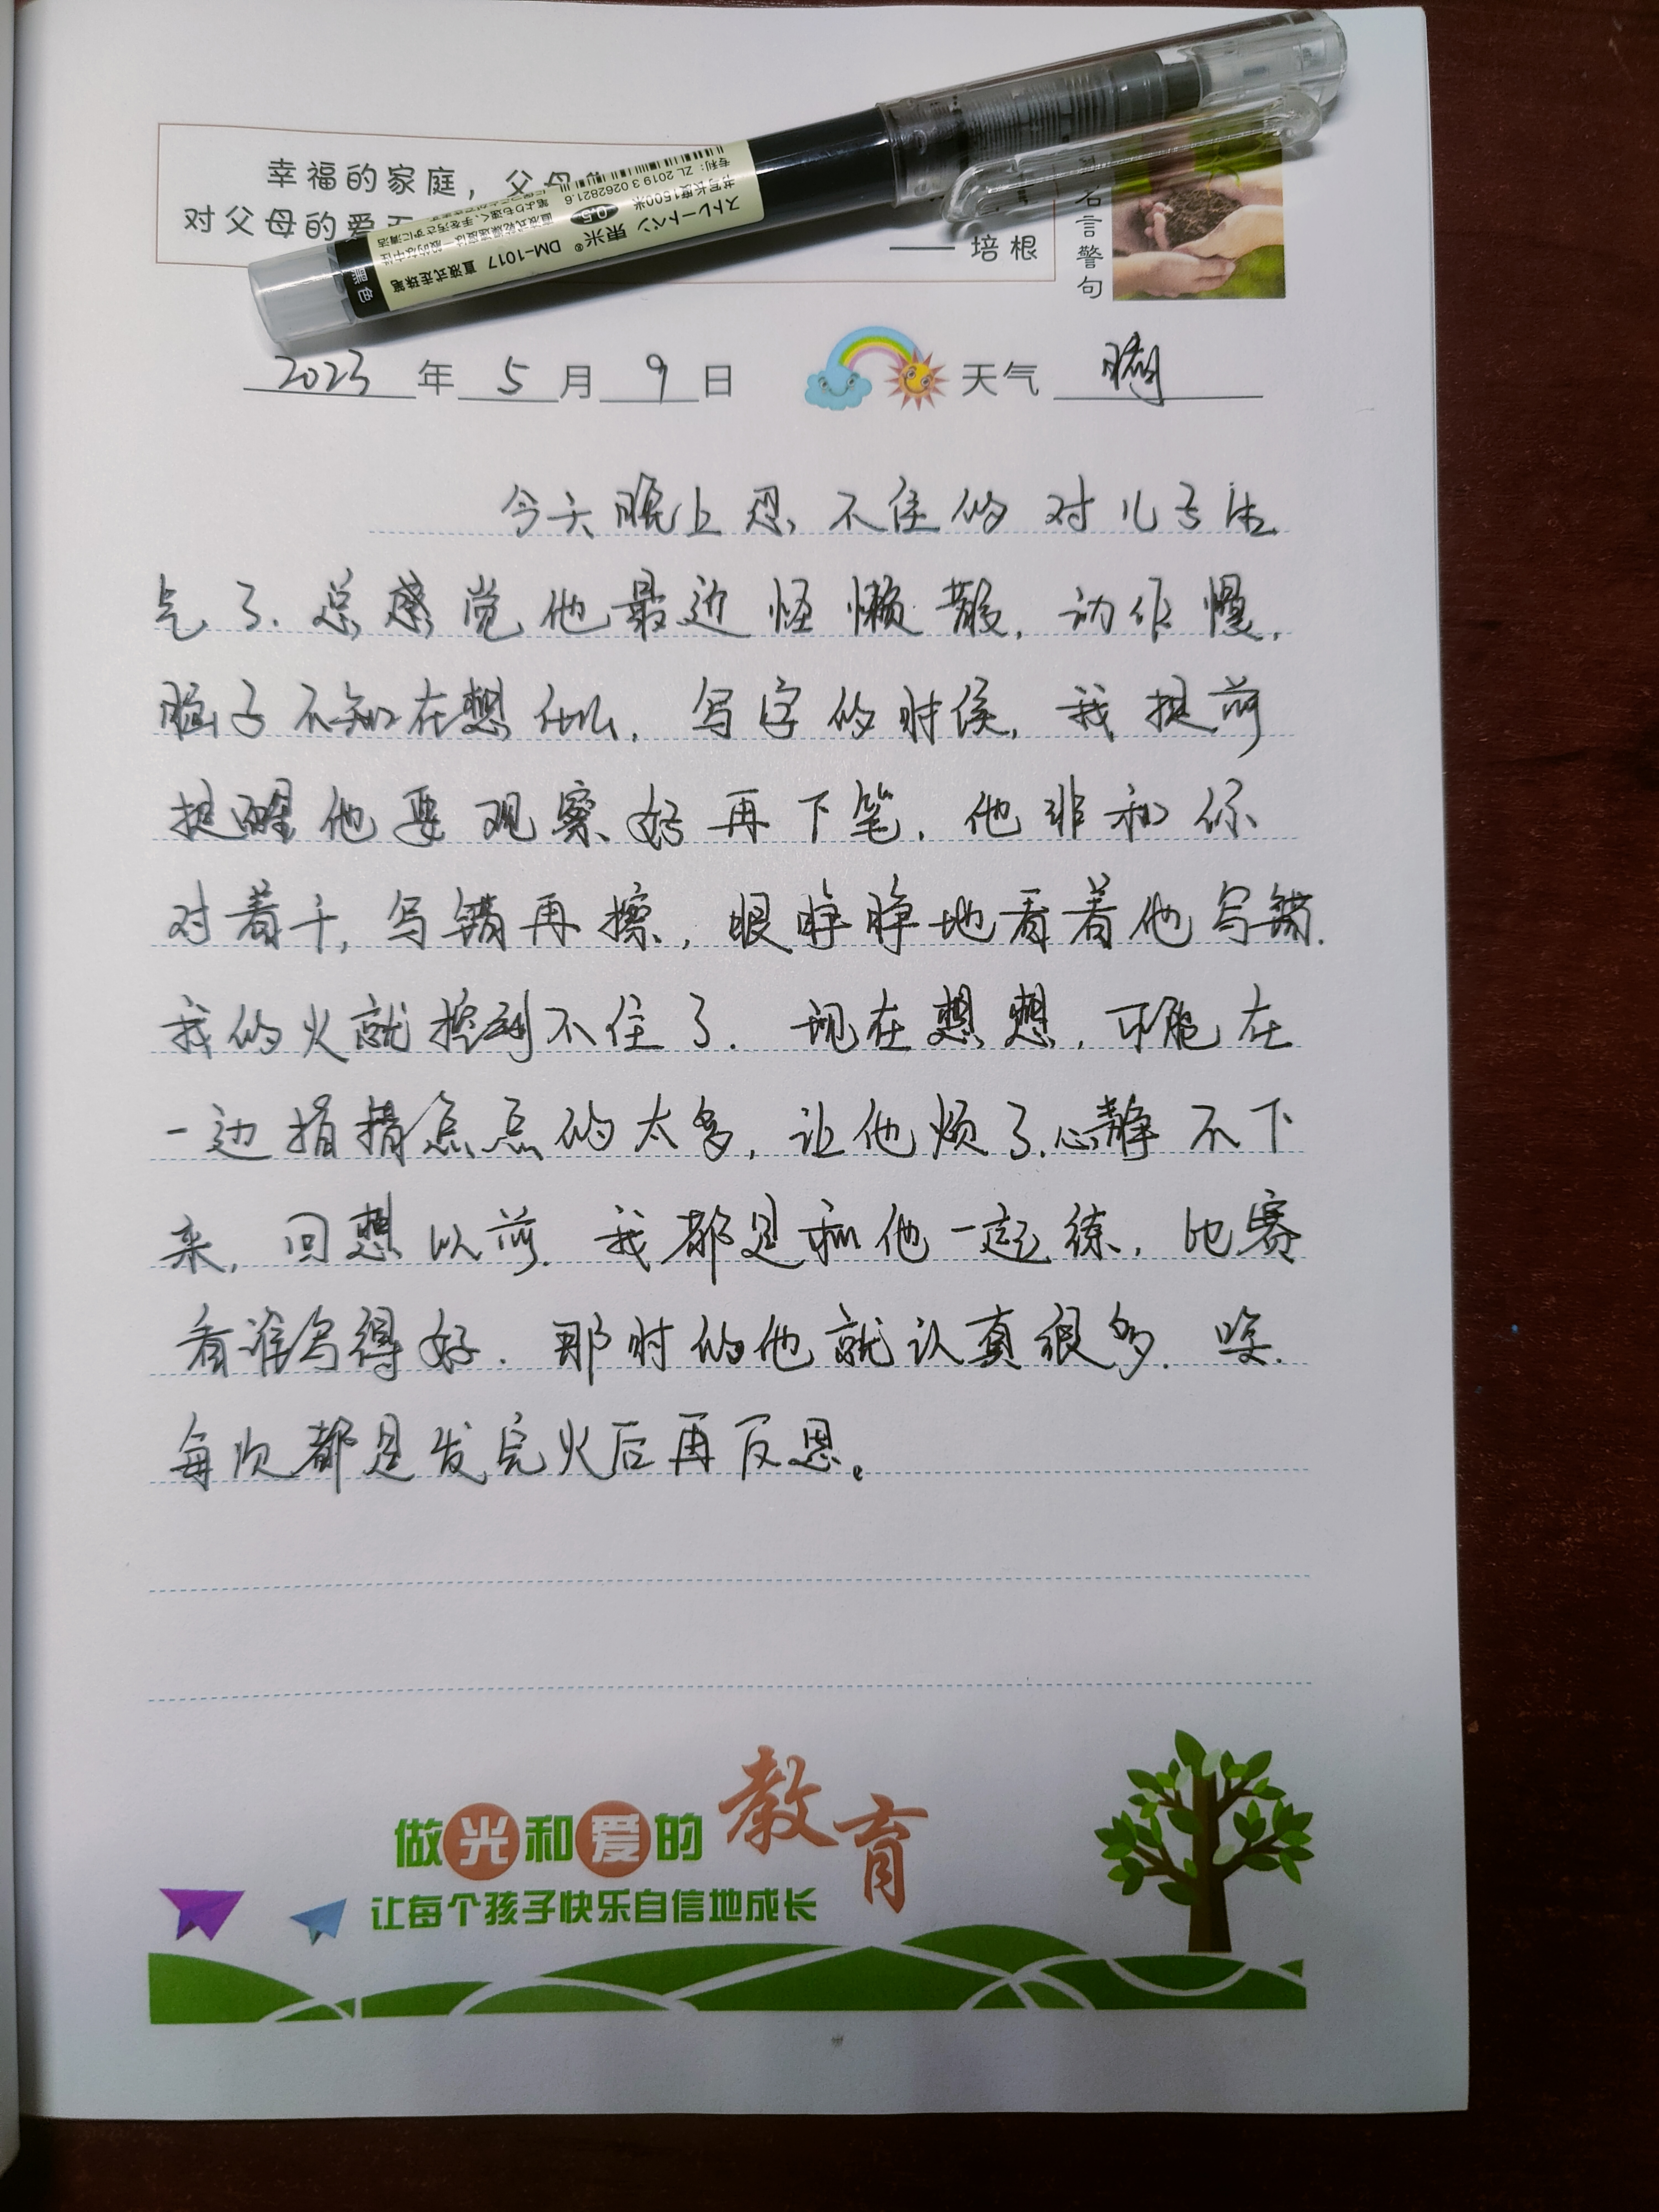 幸福的家庭，父母
对父母的爱
—— 培根
名言警句
专利：ZL 2019 3 0262821.6
书写长度1500米
ストレートペン 東米® DM-1017 直液式走珠筆
0.5
黑色
2023 年 5 月 9 日 天气 晴
今天晚上忍不住的对儿子生
气了.总感觉他最近怪懒散,动作慢,
脑子不知在想什么,写字的时候,我提前
提醒他要观察好再下笔,他非和你
对着干,写错再擦,眼睁睁地看着他写错.
我的火就控制不住了.现在想想,可能在
一边指指点点的太多,让他烦了.心静不下
来,回想以前.我都是和他一起练,比赛
看谁写得好.那时的他就认真很多.唉.
每次都是发完火后再反思。
做光和爱的教育
让每个孩子快乐自信地成长